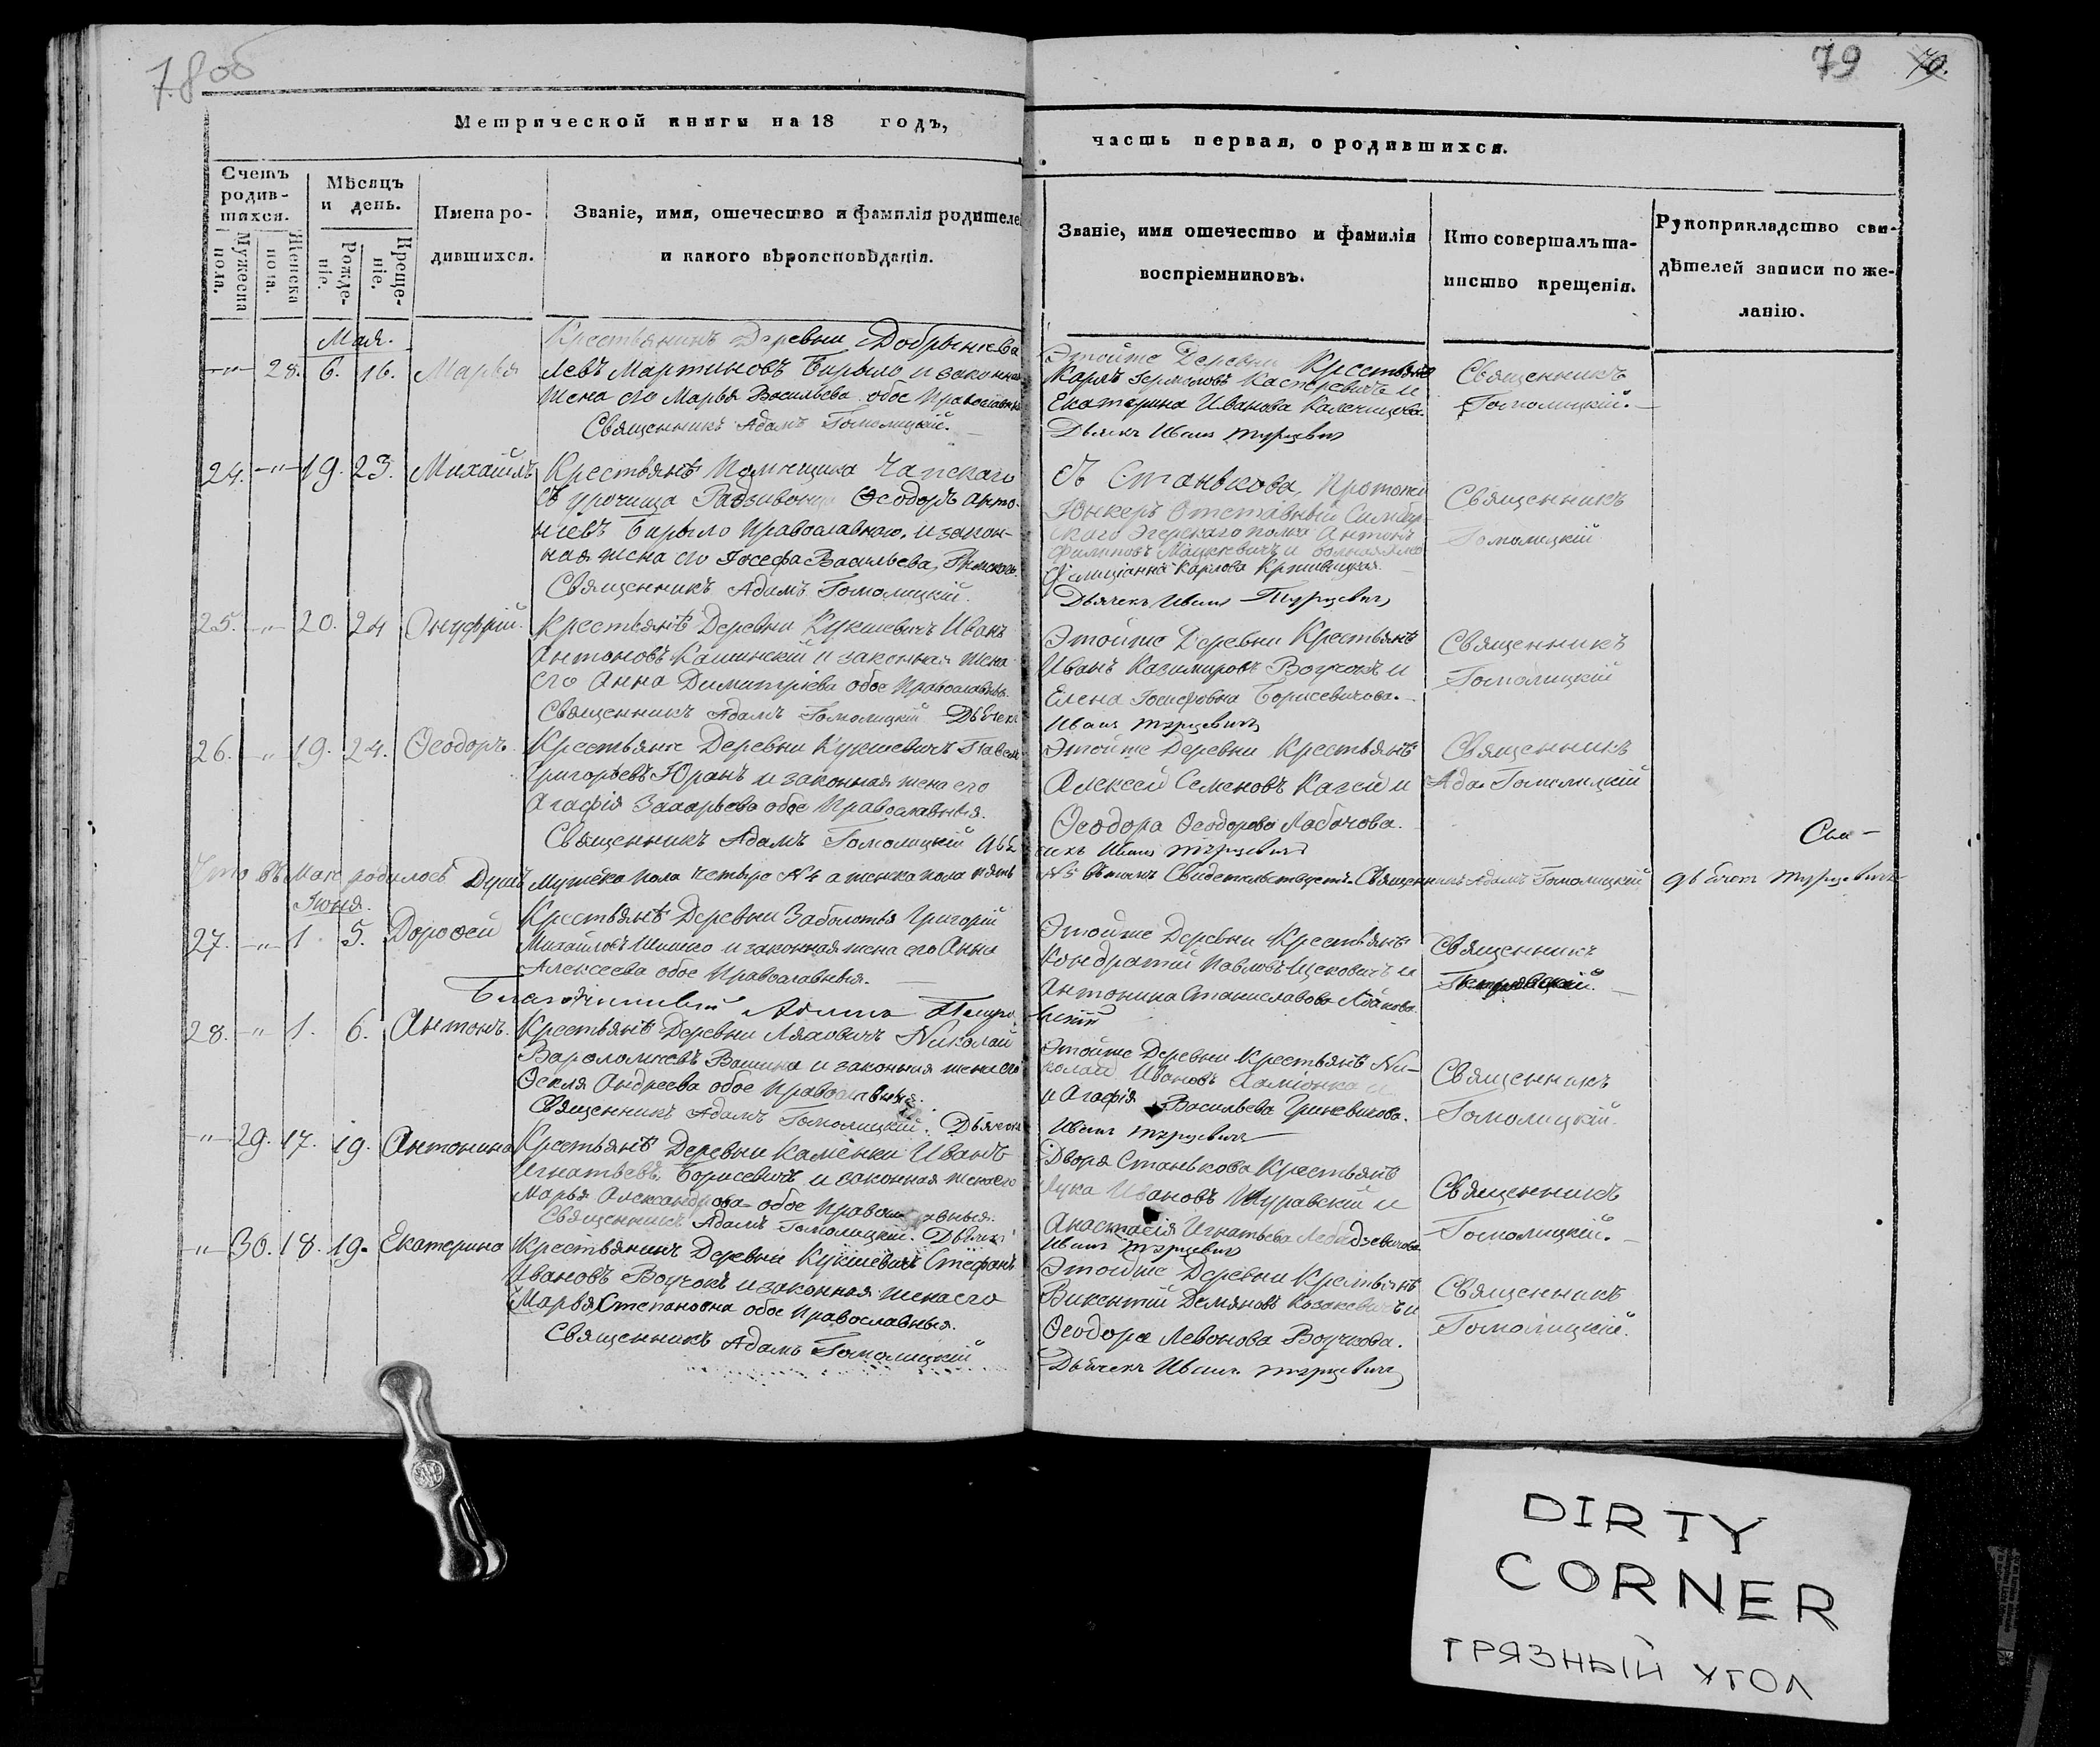 78об
79
70.
Метрической книги на 18 годъ,
часть первая, о родившихся.
Счетъ родив-шихся.
Мужеска пола.
Женска пола.
Мѣсяцъ и день.
Рожде-ніе.
Креще-ніе.
Имена ро-
дившихся.
Званіе, имя, отечество и фамилія родителе
и какого вѣроисповѣданія.
Званіе, имя отечество и фамилія
воспріемниковъ.
Кто совершалъ та-
инство крещенія.
Рукоприкладство сви-
дѣтелей записи по же-
ланію.
Мая.
28. 6. 16. Марья
Крестьянинъ Деревни Добрынева
Левъ Мартиновъ Бирыло и законная
жена его Марья Васильева обое Православные
Священникъ Адамъ Гомолицкій.
Этойже Деревни Крестьяне
Карлъ Касперевичъ и
Екатерина Иванова
Дьячекъ Иванъ Турцевич
Священникъ
Гомолицкій.
24. 19. 23. Михаилъ
Крестьянѣ Помѣщика Чапскаго
съ урочища Ѳеодоръ Анто-
ніевъ Бирыло Православнаго, и закон-
ная жена его Іосефа Васильева,
Священникъ Адамъ Гомолицкій.
Съ Станькова,
Юнкеръ Отставный
Егерскаго полка Антонъ
Филиповъ Мацкевичъ и
Карлова
Дьячекъ Иванъ Турцевич
Священникъ
Гомолицкій
25. 20. 24 Онуфрій.
Крестьянѣ Деревни Кукшевичъ Иванъ
Антоновъ Каминскій и законная жена
его Анна Димитріева обое Православные.
Священникъ Адамъ Гомолицкій Дьячекъ
Этойже Деревни Крестьянѣ
Иванъ Казимировъ Воучокъ и
Елена Іосифовна Борисевичова.
Иванъ Турцевичъ
Священникъ
Гомолицкій
26. 19. 24. Ѳеодоръ
Крестьяне Деревни Кукшевичъ Павелъ
Григорьевъ Юранъ и законная жена его
Агафія Захарьева обое Православныя.
Священникъ Адамъ Гомолицкій Дья
Этойже Деревни Крестьянѣ
Алексей Семеновъ Качей и
Ѳеодора Ѳеодорова Лабачова.
чекъ Иванъ Турцевич
Священникъ
Адам Гомолицкій
Что въ Мае родилось Детей Мужеска пола четыре №4 а женска пола пять
№5 въ томъ Свидетельствуетъ Священникъ Адамъ Гомолицкій дьячек Турцевичъ
Іюня.
27. 1 5. Дороѳей
Крестьянѣ Деревни Заболотья Григорій
Михайловъ Шишко и законная жена его Анна
Алексеева обое Православныя.
Благочинный
Этойже Деревни Крестьянѣ
Кондратій Павловъ и
Антонина Станиславова
Священникъ
28. 1. 6. Антонъ.
Крестьянѣ Деревни Ляховичъ Николай
Варѳоломеевъ Вашина и законная жена его
Ѳекля Андреева обое Православныя.
Священникъ Адамъ Гомолицкій. Дьячекъ
Этойже Деревни Крестьянѣ Ни-
колай Ивановъ
и Агафія Васильева Гриневичова.
Иванъ Турцевичъ
Священникъ
Гомолицкій.
29. 17. 19. Антонина
Крестьянѣ Деревни Каменки Иванъ
Игнатьевъ Борисевичъ и законная жена его
Марья Александрова обое Православныя.
Священникъ Адамъ Гомолицкій. Дьячекъ
Двора Станькова Крестьянѣ
Лука Ивановъ Журавскій и
Анастасія Игнатьева
Иванъ Турцевич
Священникъ
Гомолицкій.
30. 18. 19. Екатерина
Крестьянинъ Деревни Кукшевичъ Стефанъ
Ивановъ Воучокъ и законная жена его
Марья Степановна обое Православныя.
Священникъ Адамъ Гомолицкій
Этойже Деревни Крестьянѣ
Викентій Демяновъ Козакевичъ и
Ѳеодора Левонова Воучкова.
Дьячекъ Иванъ Турцевич
Священникъ
Гомолицкій.
DIRTY
CORNER
ГРЯЗНЫЙ УГОЛ